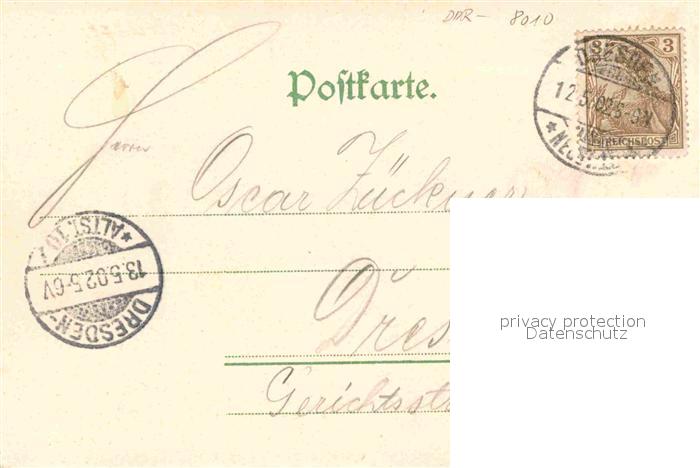 DDR- 8010
3
REICHSPOST
DRESDEN
12.5.02.5-6N
NEUSTADT
Postkarte.
Herrn
Oscar Zückner
ALTST. 10.
13.5.02.5-6V
DRESDEN-
privacy protection
Datenschutz
Dres
Gerichtsstr